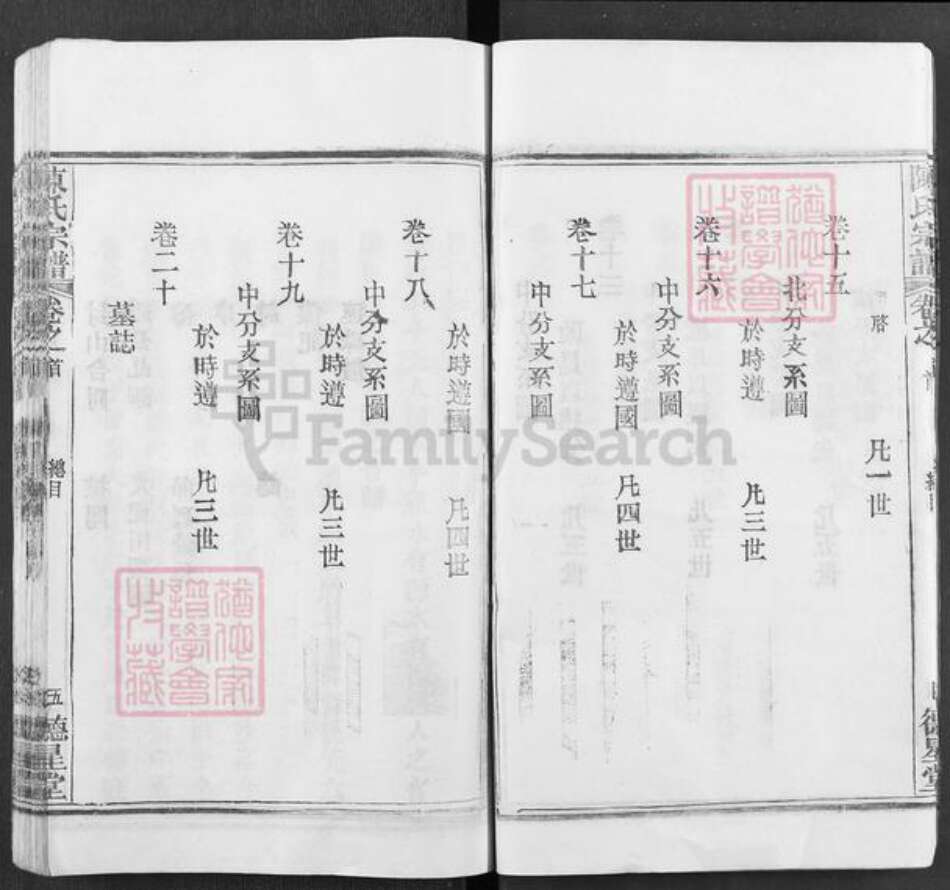 啓
凡一世
卷十五
北分支系圖
於時遵 凡三世
卷十六
中分支系圖
於時遵國 凡四世
卷十七
中分支系圖
於時遵國 凡四世
卷十八
中分支系圖
於時遵 凡三世
卷十九
中分支系圖
於時遵 凡三世
卷二十
墓誌
陳氏宗譜
卷之首
總目
五
德星堂
陳氏宗譜
卷之首
總目
德星堂
譜學會
收藏
譜學會
收藏
FamilySearch